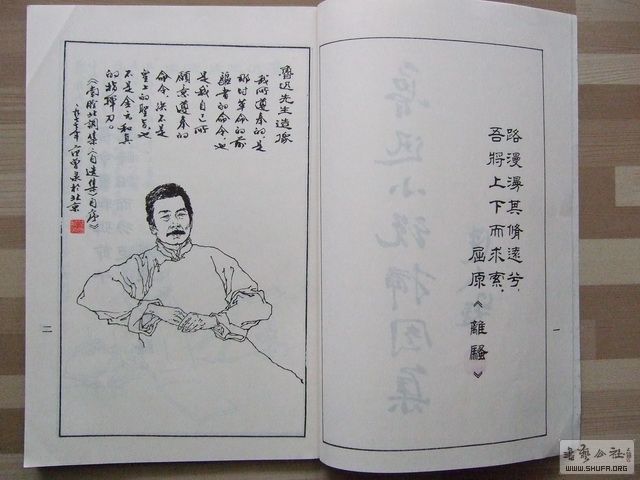 路漫漫其脩遠兮，
吾將上下而求索。
屈原《離騷》
一
魯迅先生造像
我所遵奉的是
那时革命的前
驅者的命令也
是我自己所
願意遵奉的
命令决不是
皇上的聖旨也
不是金元和真
的指揮刀。
《南腔北調集·《自選集》自序》
一九七七年 范曾 於北京
二
書藝公社
WWW.SHUFA.ORG